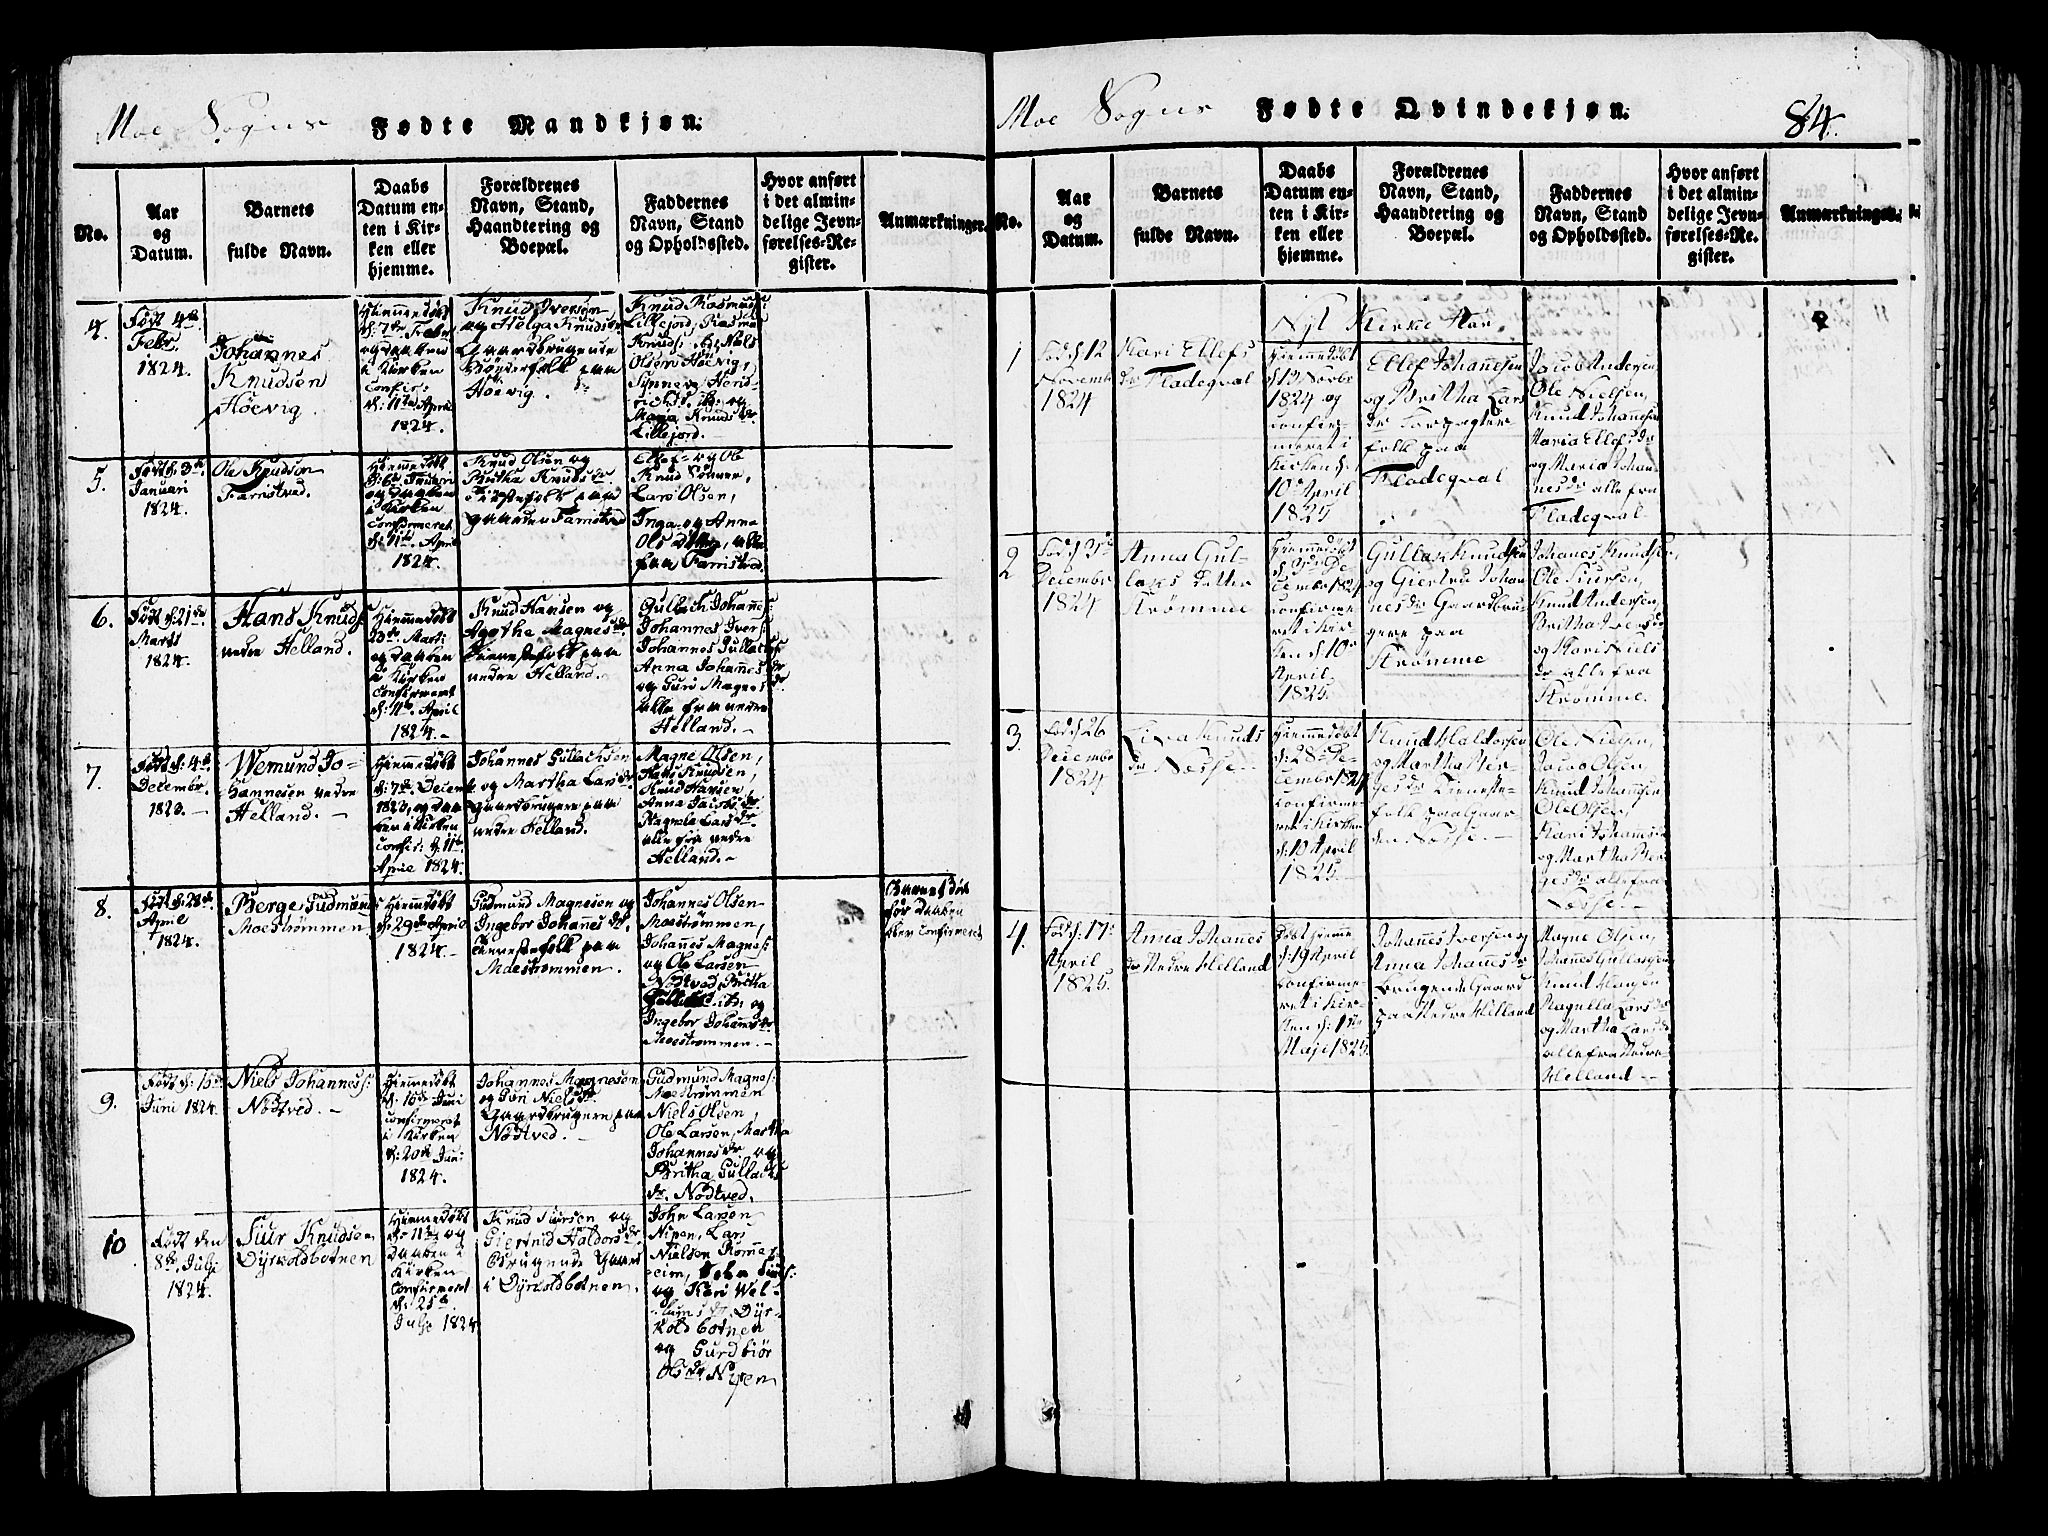 Moe Sogns Fødte Mandkjøn.
No.
Aar
og
Datum.
Barnets
fulde Navn.
Daabs
Datum en-
ten i Kir-
ken eller
hjemme.
Forældrenes
Navn, Stand,
Haandtering og
Boepæl.
Faddernes
Navn, Stand
og Opholdssted.
Hvor anført
i det almin-
delige Jevn-
førelses-Re-
gister.
Anmærkninger.
4.
Født 4de
Febr.
1824.
Johannes
Knudsen
Höevig
Hiemmedöbt
d: 7de Febr
og daaben
i Kirken
confir:
d: 11te April
1824.
Knud Iversen
og Helga Knudsdr
Gaardbrugende
Bönderfolk paa
Höevig.
Knud Rasmuds:
Lillejord, Rasmus
Knuds: ib: Nils
Olsen Höevig,
Synneva Hen-
richsd. ib: og
Maria Knudsdr
Lillejord.
5.
Født d: 3de
Januari
1824.
Ole Knudsen
Farristved.
Hiemmedöbt
d: 6te Januari
og daaben
i Kirken
confirmeret
d: 11te April
1824.
Knud Olsen og
Britha Knudsdr
Tienestefolk paa
gaarden Farristved
Ellef- og Ole
Knud Sönner,
Lars Olsen,
Inga- og Anna
Ols Dötter, alle
fra Farristved.
6.
Født d: 21de
Marts
1824.
Hans Knuds:
nedre Helland.
Hiemmedöbt
23de Marti
og daaben
i Kirken
confirmeret
d: 11te April
1824.
Knud Hansen og
Agatha Magnesdr.
Tienestefolk paa
nedre Helland.
Gullach Johannes:
Johannes Ivers:
Johannes Gullachs:
Anna Johannesdr
og Guri Magnesdr.
alle fra nedre
Helland.
7.
Født d: 4de
Decembr.
1823.
Wemund Jo-
hannesen nedre
Helland.
Hiemmedöbt
d: 7de Decem
1823, og daa
ben i Kirken
confir: d. 11te
April 1824.
Johannes Gullachsen
og Martha Larsdr
gaardbrugere paa
nedre Helland.
Magne Olsen,
Hans Knudsen,
Knud Hansen,
Anna Jacobsdr
Magnela Larsdr.
alle fra nedre
Helland.
8.
Født d: 28de
April
1824.
Berge Gudmunds
Moeströmmen
Hiemmedöbt
d: 29de April
1824.
Gudmund Magnesen og
Ingebor Johannesdr.
tienestefolk paa
Moeströmmen.
Johannes Olsen
Moeströmmen,
Johannes Magnes:
og Ole Larsen
Nödtved, Britha
ib: og
Ingebor Johannesdr
Moeströmmen.
Barnet död
för Daaben
blev confirmeret
9.
Født d: 15de
Juni 1824.
Niels Johanness:
Nödtved.
Hiemmedöbt
d. 16de Juni
confirmeret
i Kirken
d: 20de Jun:
1824.
Johannes Magnesen
og Guri Nielsdr.
Gaardbrugere paa
Nödtved.
Gudmund Magnes:
Moeströmmen
Niels Olsen,
Ole Larsen, Martha
Johannesdr og
Britha Gullachs
dr. Nödtved.
10
Födt den
8de Julji
1824.
Siur Knudsen
Dyrkoldbotnen
Hiemmedöbt
d: 11te og
daaben i
Kirken
confirmeret
d: 25de
Julji 1824
Knud Siursen og
Giertrud Haldorsdr.
Brugende Gaard
i Dyrkoldbotnen.
John Larsen
Nipen, Lars
Nielsen Romar-
eim, John Siurs:
og Kari Wel-
lumsdr. Dyr-
koldbotnen
og Gurdbiör
Olsdr. Nipen
Moe Sogns Fødte Qvindekjøn.
84.
No.
Aar
og
Datum.
Barnets
fulde Navn.
Daabs
Datum en-
ten i Kir-
ken eller
hjemme.
Forældrenes
Navn, Stand,
Haandtering og
Boepæl.
Faddernes
Navn, Stand
og Opholdssted.
Hvor anført
i det almin-
delige Jevn-
førelses-Re-
gister.
Anmærkninger.
Nyt Kirke Aar.
1
Föd d. 12
Novembr
1824
Kari Ellefs
dr Fladeqval
Hiemmedöbt
d 13 Novbr
1824 og
confir-
meret i
Kirken d.
10de April
1825
Ellef Johannesen
og Britha Lars
dr Forpagter-
folk paa
Fladeqval
Jacob Andersen,
Ole Nielsen,
Knud Johannesen
Maria Ellefsdr
og Maria Johan
nesdr alle fra
Fladeqval
2
Föd d. 21de
Decembr
1824
Anna Gul-
laks datter
Strömme
Hiemmedöbt
De-
cembr 1824
confirme-
ret i Kir-
ken d. 10de
April
1825.
Gullak Knudsen
og Giertru Johan
nesdr Gaardbru-
gere paa
Strömme
Johanes Knudsen,
Ole Siursen,
Knud Andersen,
Britha Iversdr
og Kari Niels
dr alle fra
Strömme.
3.
Föd d. 26
Decembr
1824
Knuds
dr Næsse
Hiemmedöbt
d: 28de De-
cembr 1824
confirme-
ret i Kirken
d. 10 April
1825
Knud Haldorsen
og Martha Ber-
gesdr Tieneste-
folk paa Gaar
den Næsse.
Ole Nielsen,
Jacob Olsen,
Knud Johannesen
Ole Olsen,
Kari Johannesdr
og Martha Ber
gesdr alle fra
Næsse.
4.
Föd d: 17de
April
1825.
Anna Johannes
dr Nedre Helland
Döbt hjemme
d: 19 April
confirme-
ret i Kir-
ken d: 1ste
Maji 1825.
Johannes Iversen og
Anna Johannesdr
brugende Gaard
paa Nedre Helland
Magne Olsen,
Johannes Gullachsen
Knud Hansen
Magnilla Larsdr
og Martha Larsdr
alle fra Nedre
Helland